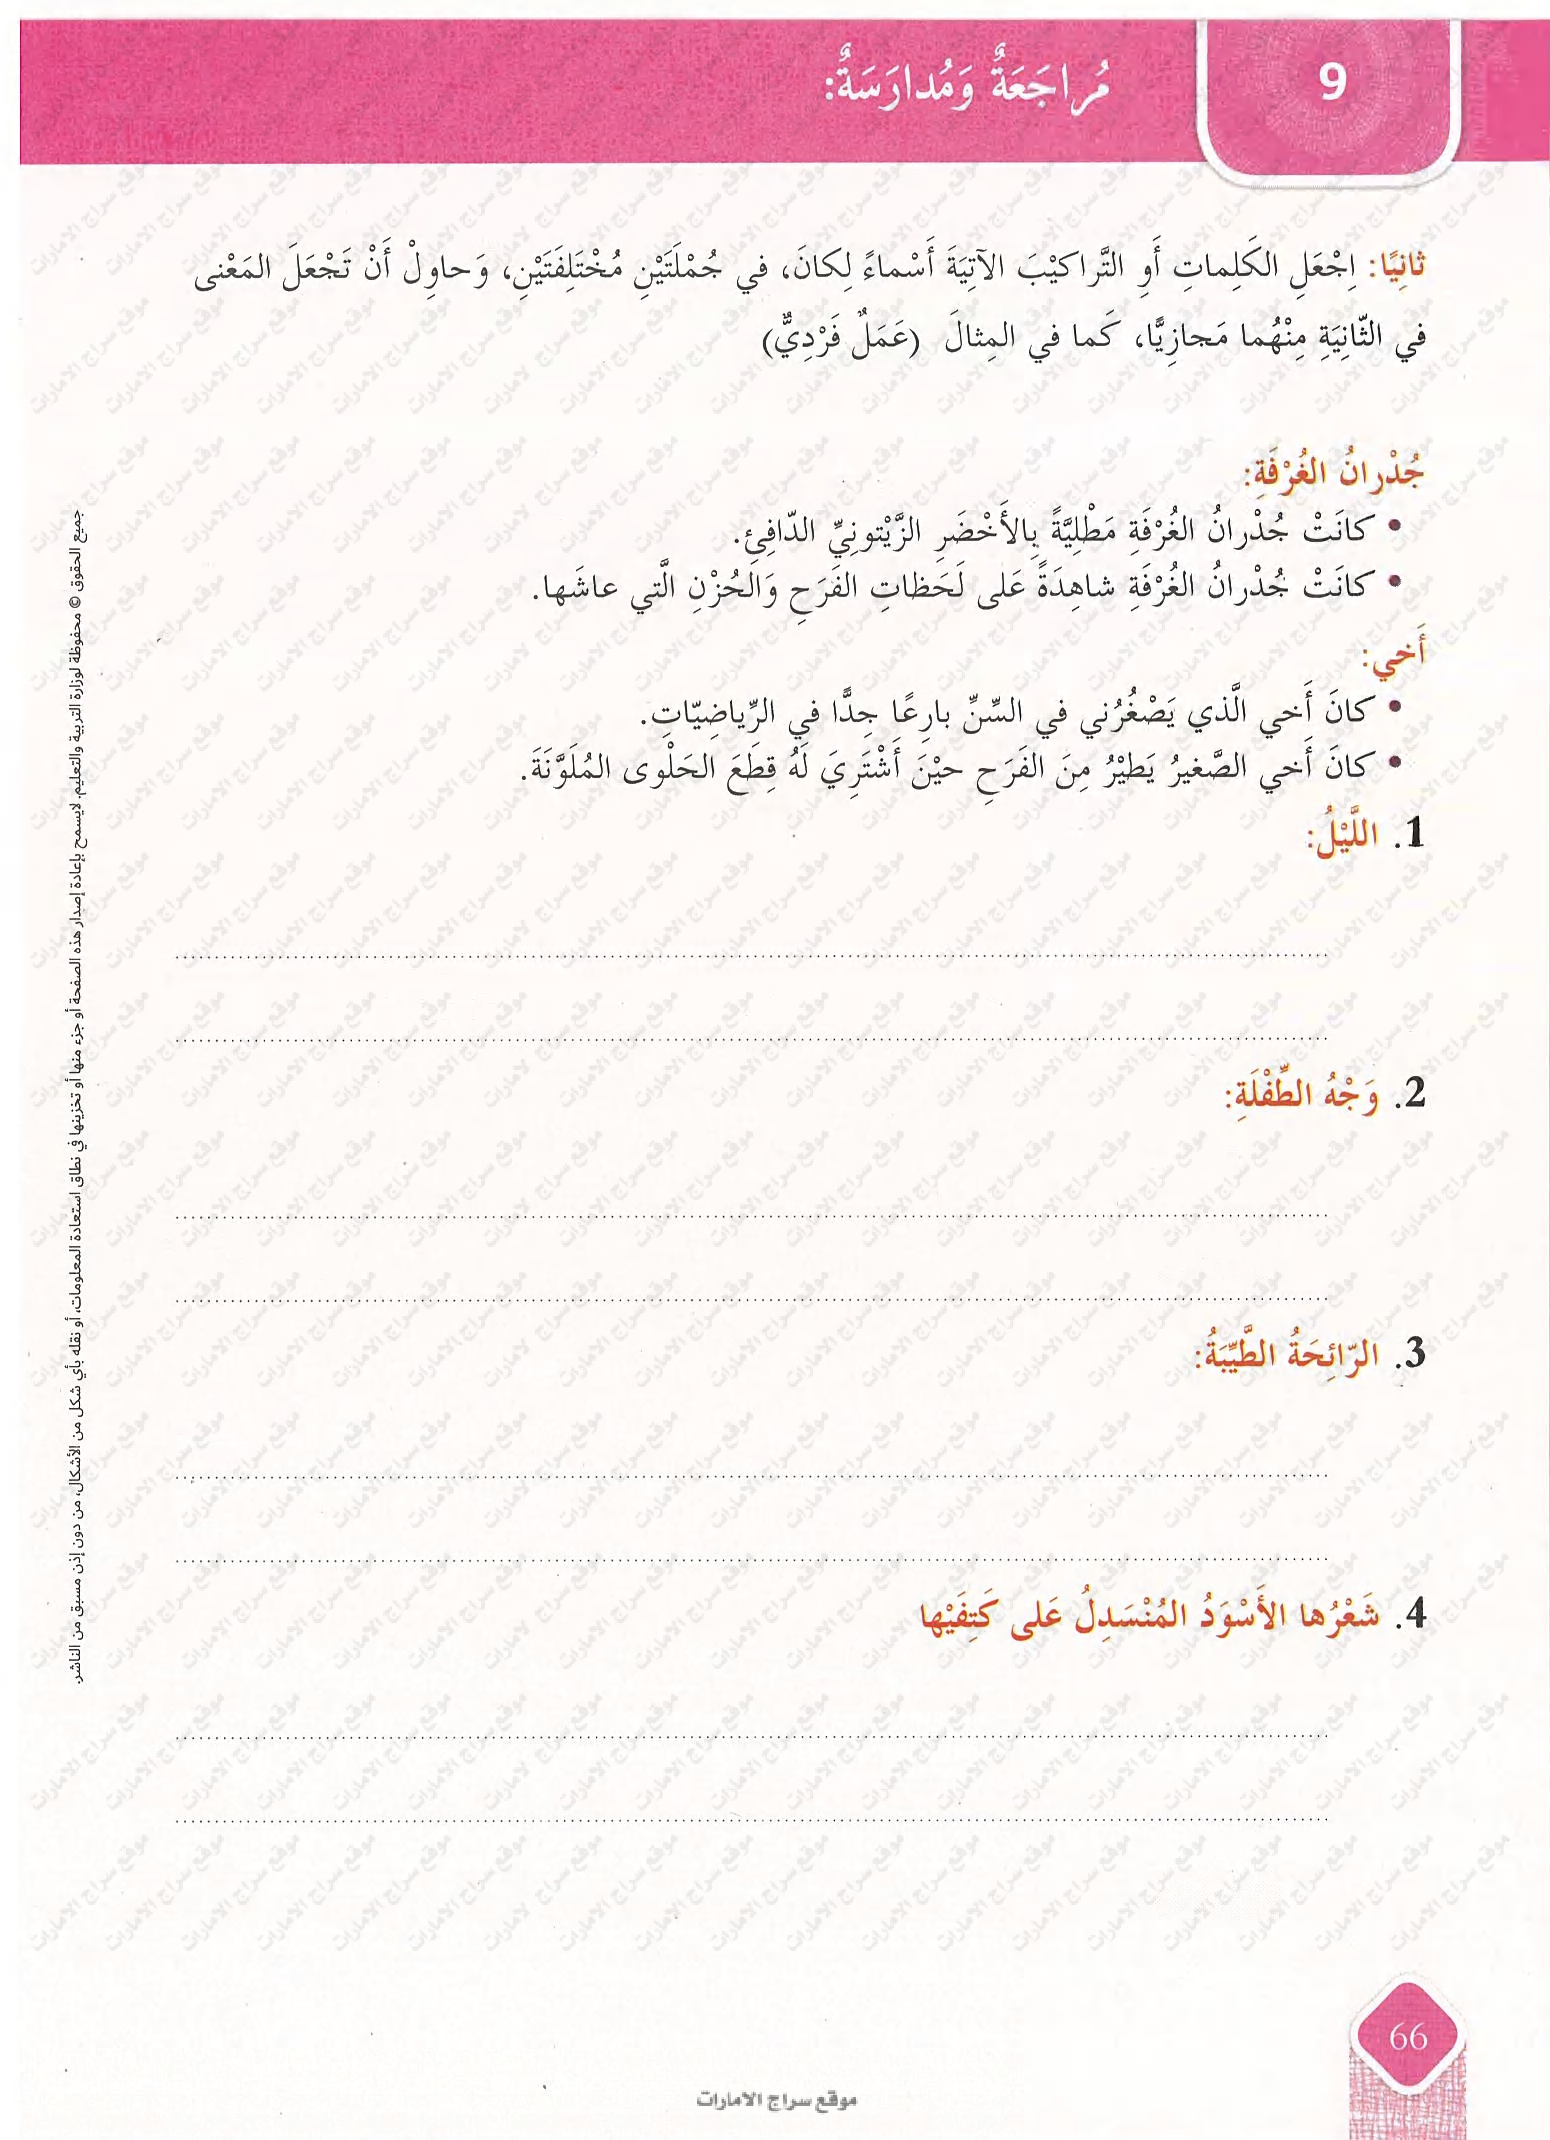 9
مُراجَعَةٌ وَمُدارَسَةٌ:
ثانِيًا: اِجْعَلِ الكَلِماتِ أَوِ التَّراكيْبَ الآتِيَةَ أَسْماءً لِكانَ، في جُمْلَتَيْنِ مُخْتَلِفَتَيْنِ، وَحاوِلْ أَنْ تَجْعَلَ المَعْنى
في الثّانِيَةِ مِنْهُما مَجازِيًّا، كَما في المِثالَ (عَمَلٌ فَرْدِيٌّ)
جُدْرانُ الغُرْفَةِ:
• كانَتْ جُدْرانُ الغُرْفَةِ مَطْلِيَّةً بِالأَخْضَرِ الزَّيْتونِيِّ الدّافِئِ.
• كانَتْ جُدْرانُ الغُرْفَةِ شاهِدَةً عَلى لَحَظاتِ الفَرَحِ وَالحُزْنِ الَّتي عاشَها.
أَخي:
• كانَ أَخي الَّذي يَصْغُرُني في السِّنِّ بارِعًا جِدًّا في الرِّياضِيّاتِ.
• كانَ أَخي الصَّغيرُ يَطيْرُ مِنَ الفَرَحِ حيْنَ أَشْتَرِيَ لَهُ قِطَعَ الحَلْوى المُلَوَّنَةَ.
1. اللَّيْلُ:
2. وَجْهُ الطِّفْلَةِ:
3. الرّائِحَةُ الطَّيِّبَةُ:
4. شَعْرُها الأَسْوَدُ المُنْسَدِلُ عَلى كَتِفَيْها
جميع الحقوق © محفوظة لوزارة التربية والتعليم. لايسمح بإعادة إصدار هذه الصفحة أو جزء منها أو تخزينها في نطاق استعادة المعلومات، أو نقله بأي شكل من الأشكال، من دون إذن مسبق من الناشر.
66
موقع سراج الامارات